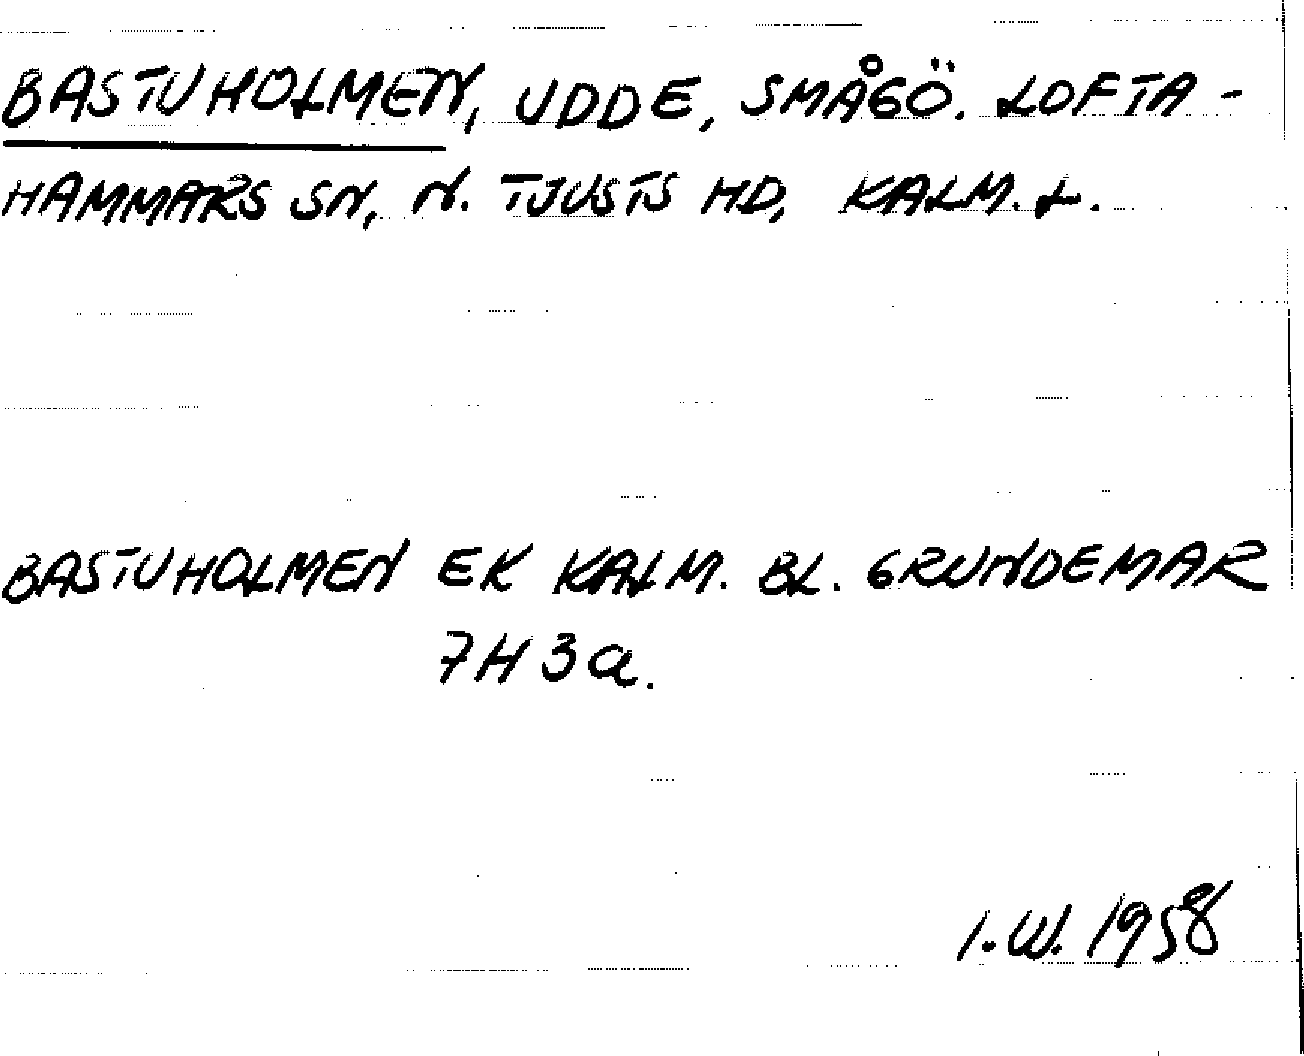 BASTUHOLMEN, UDDE, SMÅGÖ. LOFTA-
HAMMARS SN, N. TJUSTS HD, KALM. L.
BASTUHOLMEN EK KALM. BL. GRUNDEMAR
7H3a.
I.W. 1958